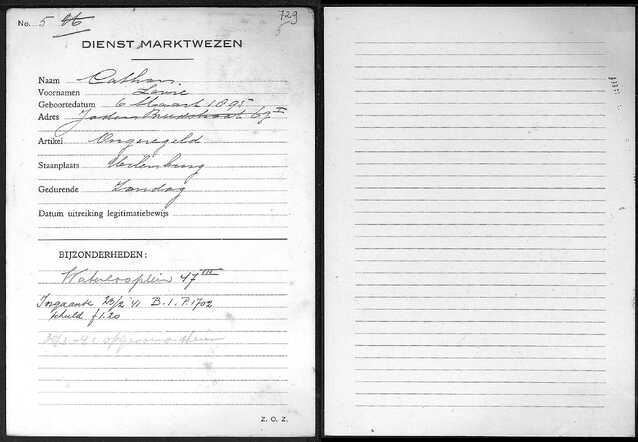 No. 5 46 729
DIENST MARKTWEZEN
Naam Cathars
Voornamen Louis
Geboortedatum 6 Maart 1895
Adres Joden Breestraat 67 II
Artikel Ongeregeld
Staanplaats Uilenburg
Gedurende Zondag
Datum uitreiking legitimatiebewijs
BIJZONDERHEDEN:
Waterlooplein 47 III
Ingaande 23/2 41 B.I.P. 1702
schuld f 1.20
Z. O. Z.